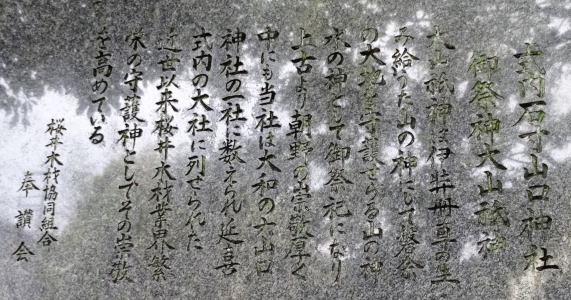 式内石寸山口神社
御祭神大山祇神
大山祇神は伊弉冊尊の生
み給うた山の神にして磐余
の大地を守護せらる山の神
水の神として御祭祀になり
上古より朝野の崇敬厚く
中にも当社は大和の六山口
神社の一社に数えられ延喜
式内の大社に列せられた
近世以来桜井木材業界繁
栄の守護神としてその崇敬
を高めている
桜井木材協同組合
奉讃会